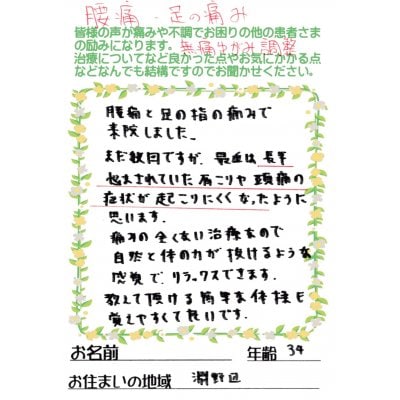 腰痛・足の痛み
皆様の声が痛みや不調でお困りの他の患者さま
の励みになります。無痛ゆがみ調整
治療についてなど良かった点やお気にかかる点
などなんでも結構ですのでお聞かせください。
腰痛と足の指の痛みで
来院しました。
まだ数回ですが、最近は長年
悩まされていた肩こりや頭痛の
症状が起こりにくくなったように
思います。
痛みの全くない治療なので
自然と体の力が抜けるような
感覚で、リラックスできます。
教えて頂ける簡単な体操も
覚えやすくて良いです。
お名前 年齢 34
お住まいの地域 淵野辺